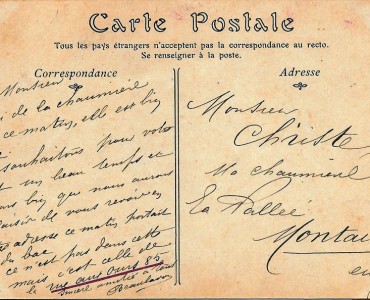 Carte Postale
Tous les pays étrangers n'acceptent pas la correspondance au recto.
Se renseigner à la poste.
Correspondance
Monsieur
de la chaumière
ce matin, elle est bien
souhaitons pour votre
un beau temps et
que nous aurons
plaisir de vous revoir en
adresse ce matin portait
du bac
ce n'est pas dans cette
mais c'est celle de
rue aux Ours 83
Sincère amitié à tous
Adresse
Monsieur
Christe
Ma chaumière
La Vallée
Montai
en